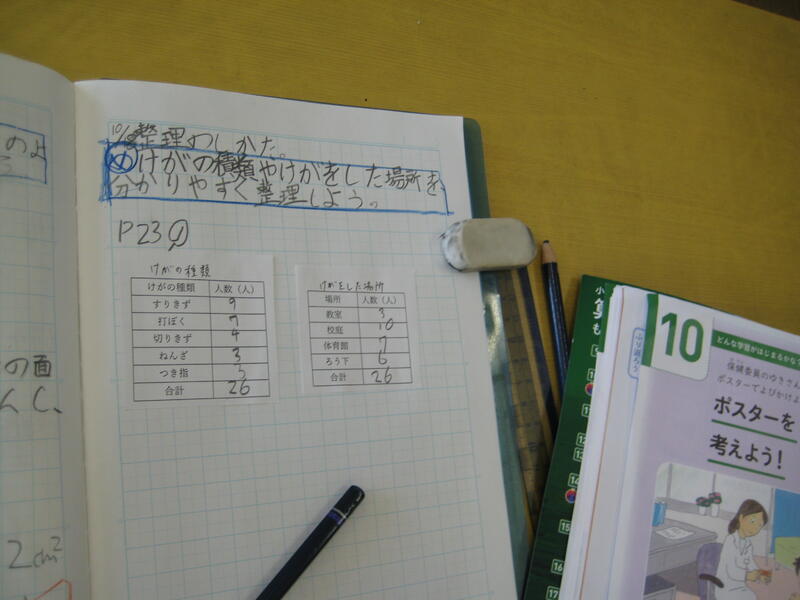 10/8 整理のしかた。
め けがの種類やけがをした場所を、
分かりやすく整理しよう。
P23 1
けがの種類
けがの種類 人数(人)
すりきず 9
打ぼく 7
切りきず 4
ねんざ 3
つき指 3
合計 26
けがをした場所
場所 人数(人)
教室 3
校庭 10
体育館 7
ろう下 6
合計 26
のよ
う
の面
んし、
2cm²
小
算
も
ふり返ろう
10
どんな学習がはじまるかな?
保健委員のゆきさん
ポスターでよびかけよ
ポスターを
考えよう!
15
16
17